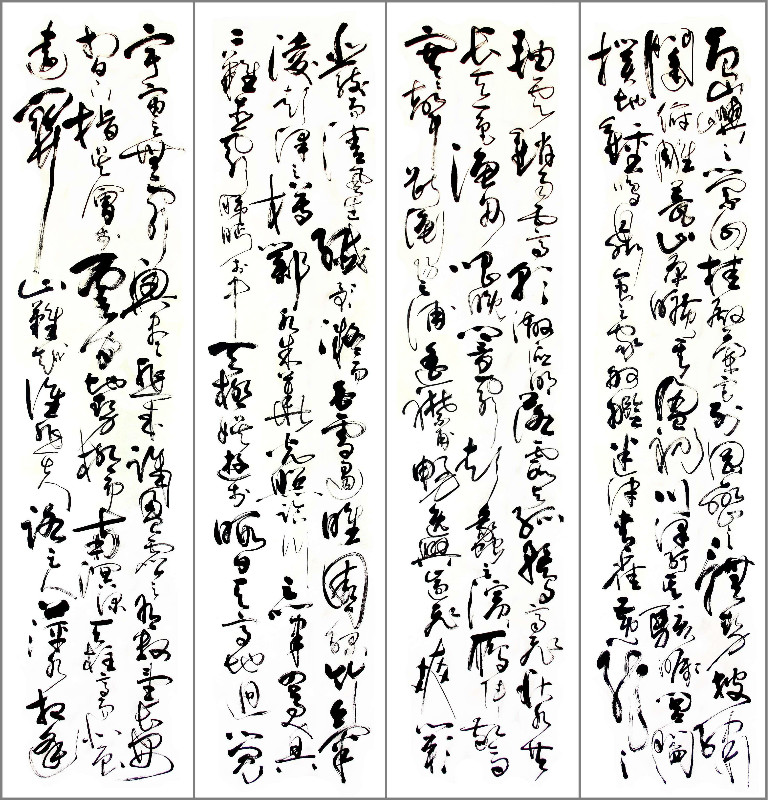 島嶼之縈回桂殿蘭宮列岡巒之體勢披繡
闥俯雕甍山原曠其盈視川澤盱其駭矚閭閻
撲地鐘鳴鼎食之家舸艦迷津青雀黃龍之
軸雲銷雨霽彩徹區明落霞與孤鶩齊飛秋水共
長天一色漁舟唱晚響窮彭蠡之濱雁陣驚
寒聲斷衡陽之浦遙襟甫暢逸興遄飛爽籟
發而清風生纖歌凝而白雲遏睢園綠竹氣
凌彭澤之樽鄴水朱華光照臨川之筆四美具
二難並窮睇眄於中天極娛遊於暇日天高地迥覺
宇宙之無窮興盡悲來識盈虛之有數望長安
於日下指吳會於雲間地勢極而南溟深天柱高而北辰
遠關山難越誰悲失路之人萍水相逢